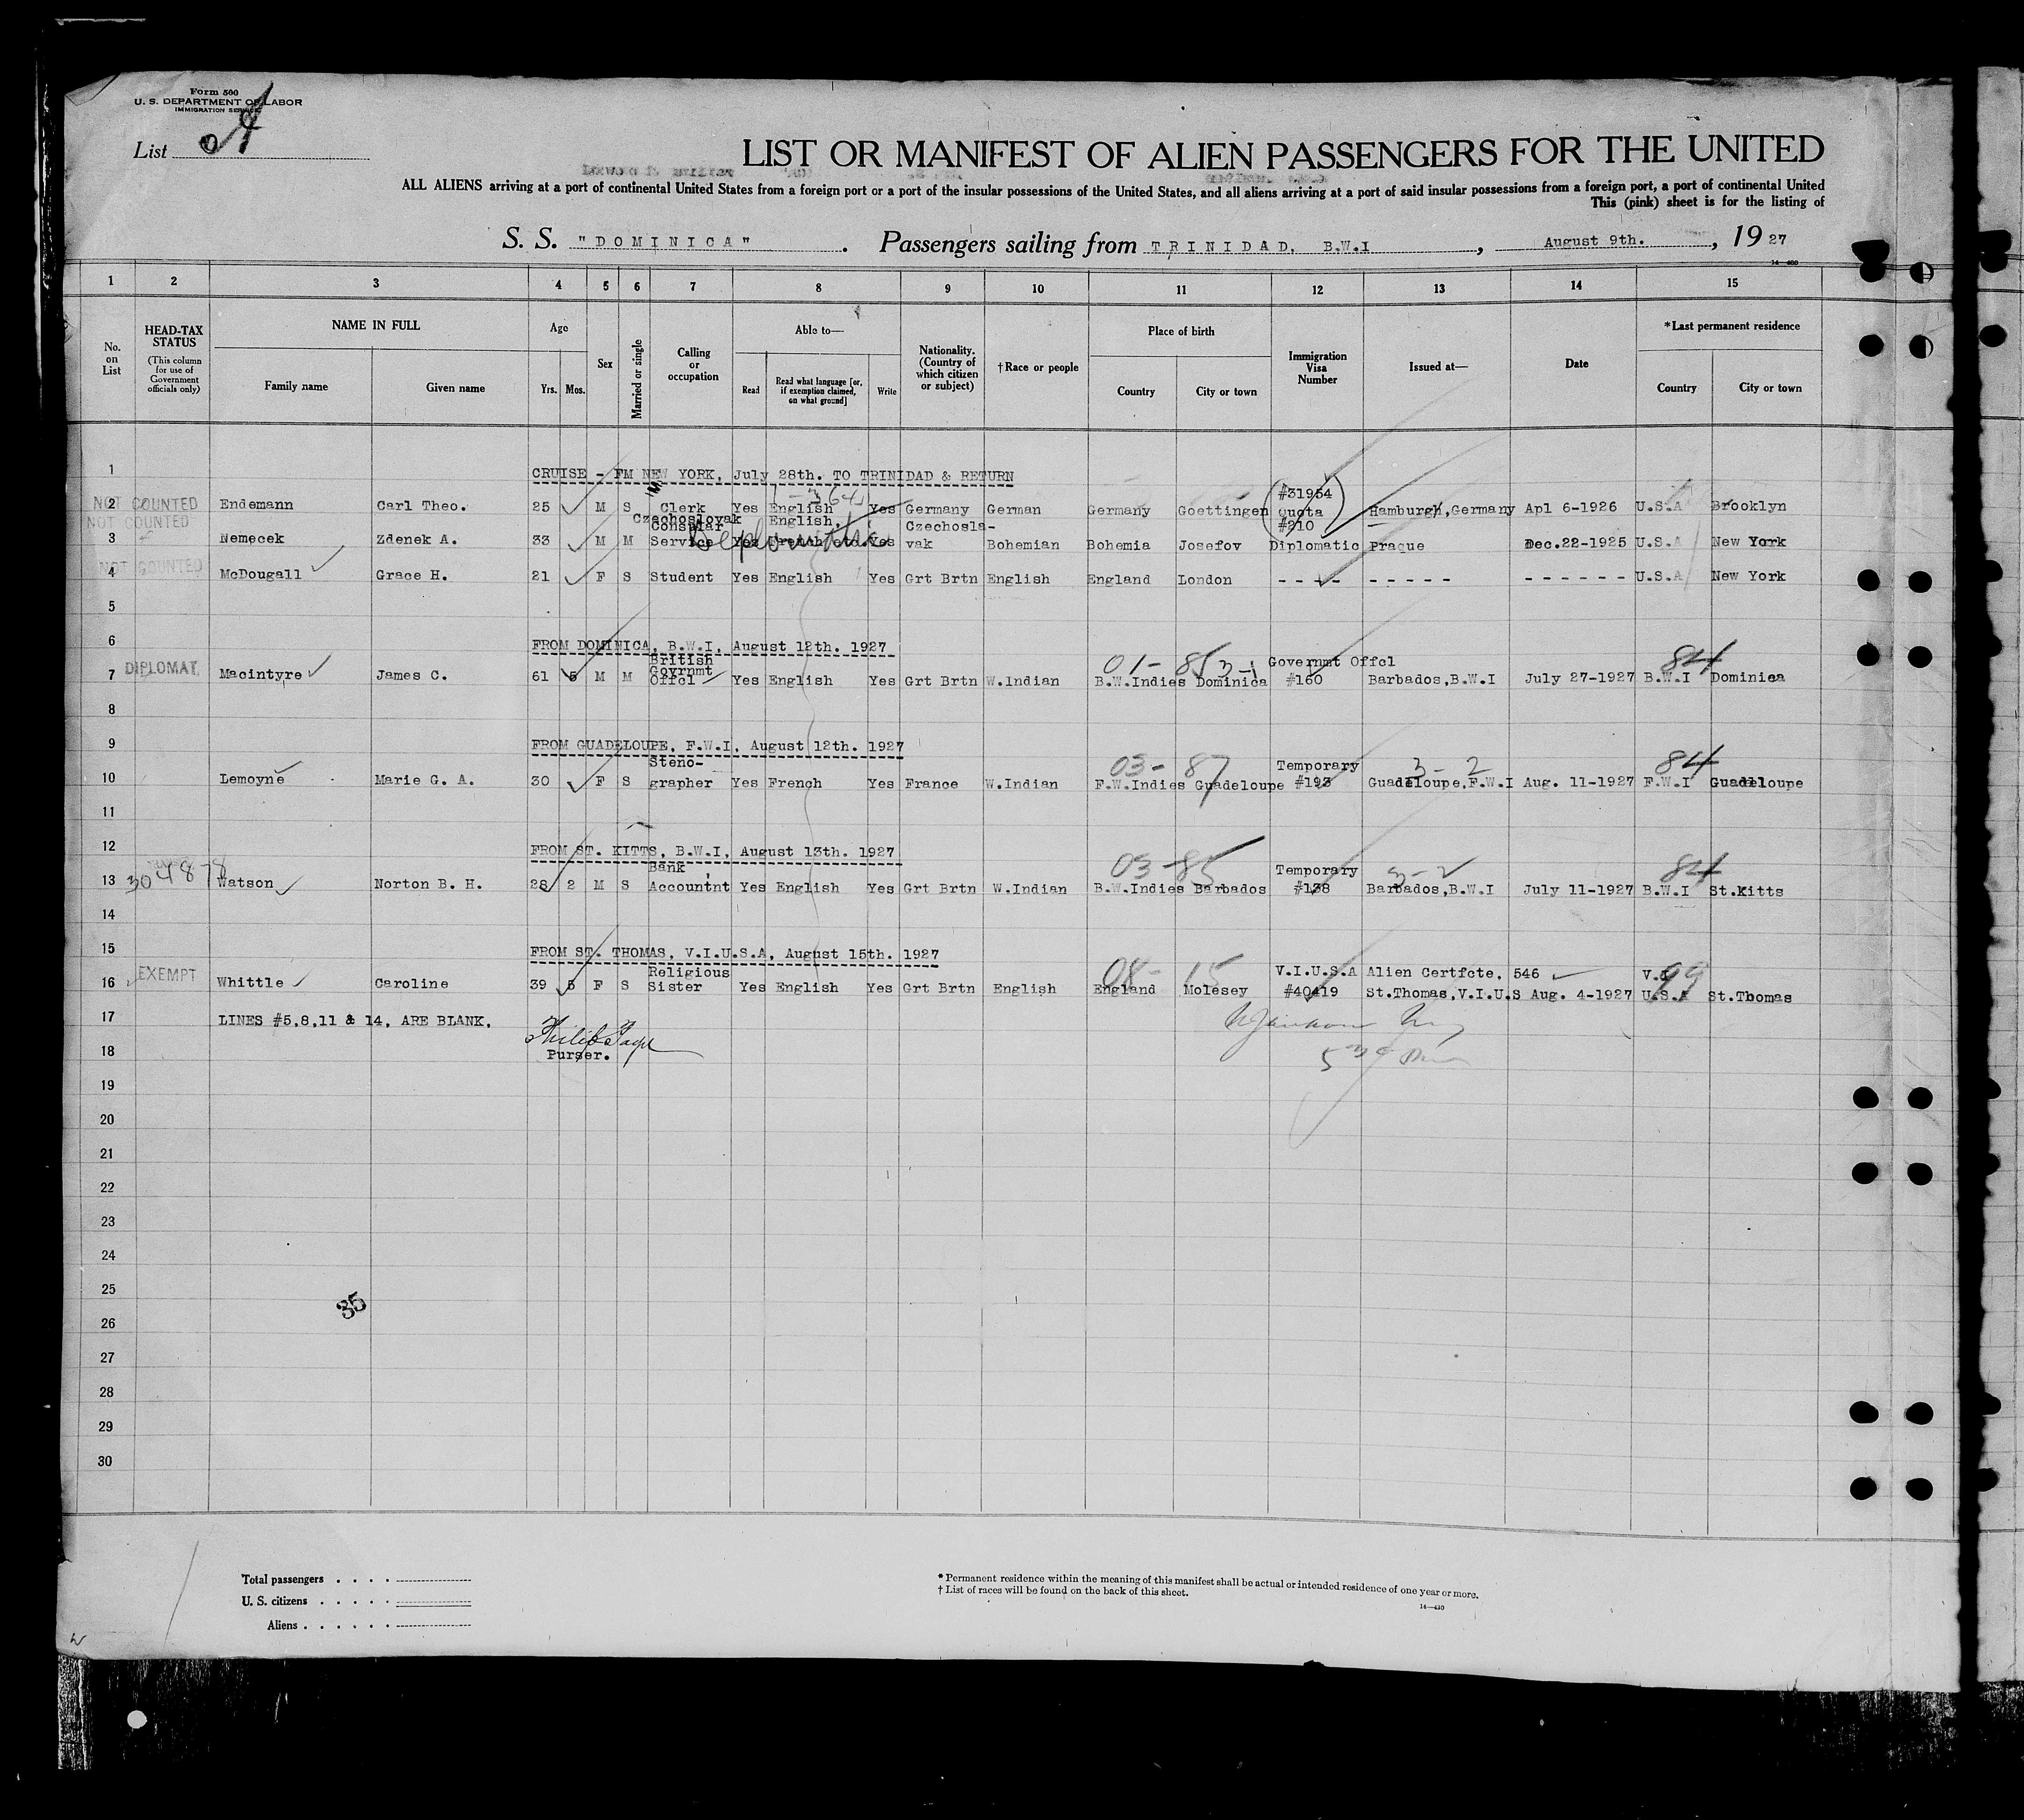 Form 500
U. S. DEPARTMENT OF LABOR
IMMIGRATION SERVICE
List A
LIST OR MANIFEST OF ALIEN PASSENGERS FOR THE UNITED
ALL ALIENS arriving at a port of continental United States from a foreign port or a port of the insular possessions of the United States, and all aliens arriving at a port of said insular possessions from a foreign port, a port of continental United
This (pink) sheet is for the listing of
S. S. "DOMINICA" . Passengers sailing from TRINIDAD, B.W.I , August 9th. , 1927
14-430
1 2 3 4 5 6 7 8 9 10 11 12 13 14 15
No. on List
HEAD-TAX STATUS
(This column for use of Government officials only)
NAME IN FULL
Family name Given name
Age
Yrs. Mos.
Sex
Married or single
Calling or occupation
Able to—
Read Read what language [or, if exemption claimed, on what ground] Write
Nationality. (Country of which citizen or subject)
†Race or people
Place of birth
Country City or town
Immigration Visa Number
Issued at—
Date
*Last permanent residence
Country City or town
1 CRUISE - FM NEW YORK, July 28th. TO TRINIDAD & RETURN
NOT COUNTED 2 Endemann Carl Theo. 25 M S Clerk Yes English Yes Germany German Germany Goettingen #31954 Quota Hamburgh,Germany Apl 6-1926 U.S.A Brooklyn
NOT COUNTED 3 Nemecek Zdenek A. 33 M M Czechoslovak Consular Service Yes English, French etc Yes Czechosla-vak Bohemian Bohemia Josefov #210 Diplomatic Prague Dec.22-1925 U.S.A New York
NOT COUNTED 4 McDougall Grace H. 21 F S Student Yes English Yes Grt Brtn English England London - - - - - - - - - - - - - - - U.S.A New York
5
6 FROM DOMINICA, B.W.I, August 12th. 1927
7 DIPLOMAT Macintyre James C. 61 5 M M British Govrnmt Offcl Yes English Yes Grt Brtn W.Indian 01-85 3-1 B.W.Indies Dominica Governmt Offcl #160 Barbados,B.W.I July 27-1927 84 B.W.I Dominica
8
9 FROM GUADELOUPE, F.W.I, August 12th. 1927
10 Lemoyne Marie G. A. 30 F S Steno-grapher Yes French Yes France W.Indian 03-87 F.W.Indies Guadeloupe Temporary #193 3-2 Guadeloupe,F.W.I Aug. 11-1927 84 F.W.I Guadeloupe
11
12 FROM ST. KITTS, B.W.I, August 13th. 1927
13 304878 Watson Norton B. H. 28 2 M S Bank Accountnt Yes English Yes Grt Brtn W.Indian 03-85 B.W.Indies Barbados Temporary #138 3-2 Barbados,B.W.I July 11-1927 84 B.W.I St.Kitts
14
15 FROM ST. THOMAS, V.I.U.S.A, August 15th. 1927
16 EXEMPT Whittle Caroline 39 5 F S Religious Sister Yes English Yes Grt Brtn English 08-15 England Molesey V.I.U.S.A Alien Certfcte, 546 #40419 St.Thomas,V.I.U.S Aug. 4-1927 99 V.I U.S.A St.Thomas
17 LINES #5,8,11 & 14, ARE BLANK,
18 Purser.
19
20
21
22
23
24
25
35
26
27
28
29
30
Total passengers . . . .
U. S. citizens . . . . .
Aliens . . . . . .
* Permanent residence within the meaning of this manifest shall be actual or intended residence of one year or more.
† List of races will be found on the back of this sheet.
14-430